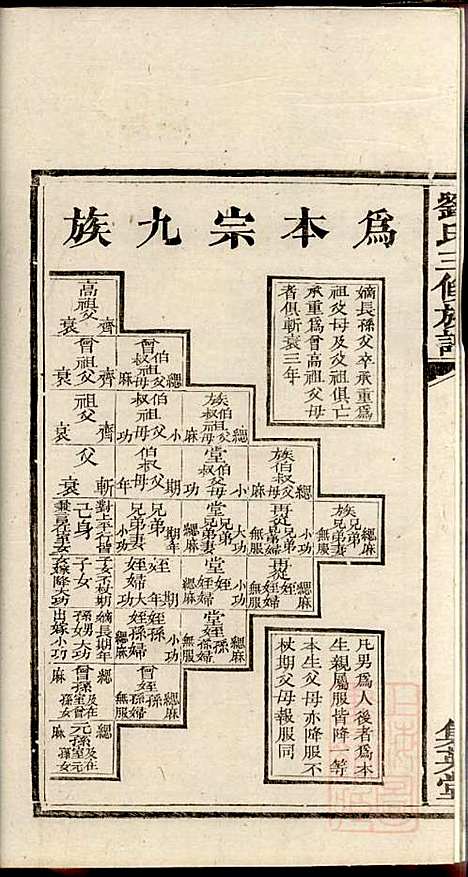 劉氏三修族譜
集英堂
為本宗九族
嫡長孫父卒承重為
祖父母及父祖俱亡
承重為曾高祖父母
者俱斬衰三年
高祖父
齊衰
曾祖父
齊衰
曾伯叔祖父母
緦麻
祖父
齊衰
伯叔祖父母
小功
族伯叔祖父母
緦麻
父
斬衰
伯叔父母
期年
堂伯叔父母
小功
族伯叔父母
緦麻
己身
兄弟
期年
兄弟妻
小功
堂兄弟
大功
堂兄弟妻
緦麻
再從兄弟
小功
再從兄弟妻
無服
族兄弟
緦麻
族兄弟妻
無服
子女
姪
期年
姪婦
大功
堂姪
小功
堂姪婦
緦麻
再從姪
緦麻
再從姪婦
無服
嫡長期年
孫男大功
出嫁小功
姪孫
小功
姪孫婦
緦麻
堂姪孫
緦麻
堂姪孫婦
無服
曾孫
緦麻
曾姪孫
緦麻
曾姪孫婦
無服
元孫
緦麻
凡男為人後者為本
生親屬服皆降一等
本生父母亦降服不
杖期父母報服同